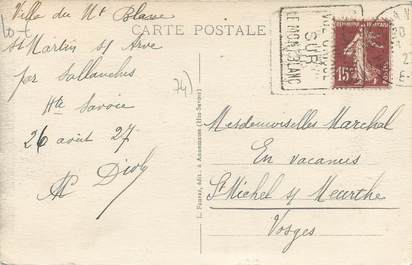 Villa du Mt Blanc
St Martin s/ Arve
par Sallanches
Hte Savoie
26 août 27
74)
CARTE POSTALE
SUR
LE MONT-BLANC
15c
Mesdemoiselles Marchal
En vacances
St Michel s/ Meurthe
Vosges